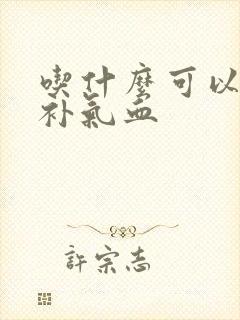 喫什麼可以
补氣血
許宗志